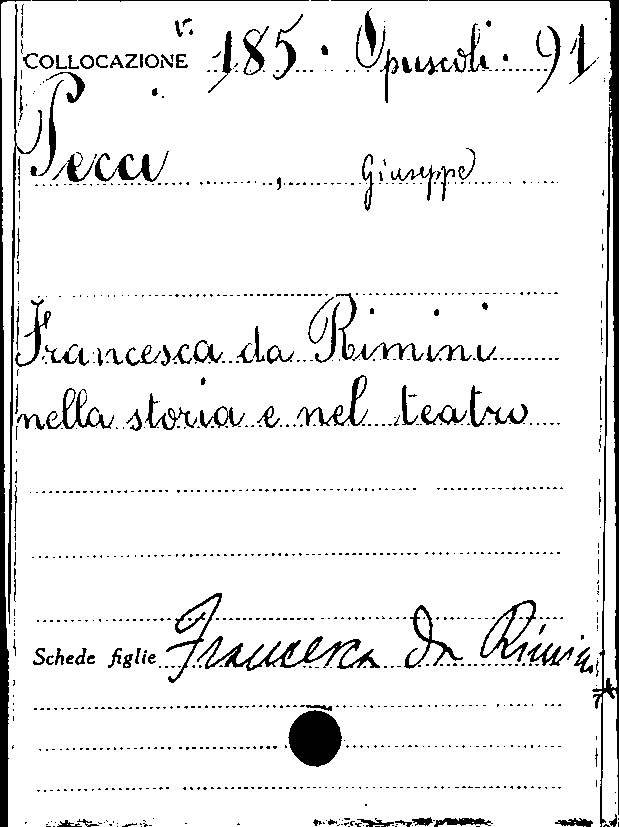 COLLOCAZIONE v. 185 · Opuscoli · 91
Pecci , Giuseppe
Francesca da Rimini
nella storia e nel teatro
Schede figlie Francesca da Rimini